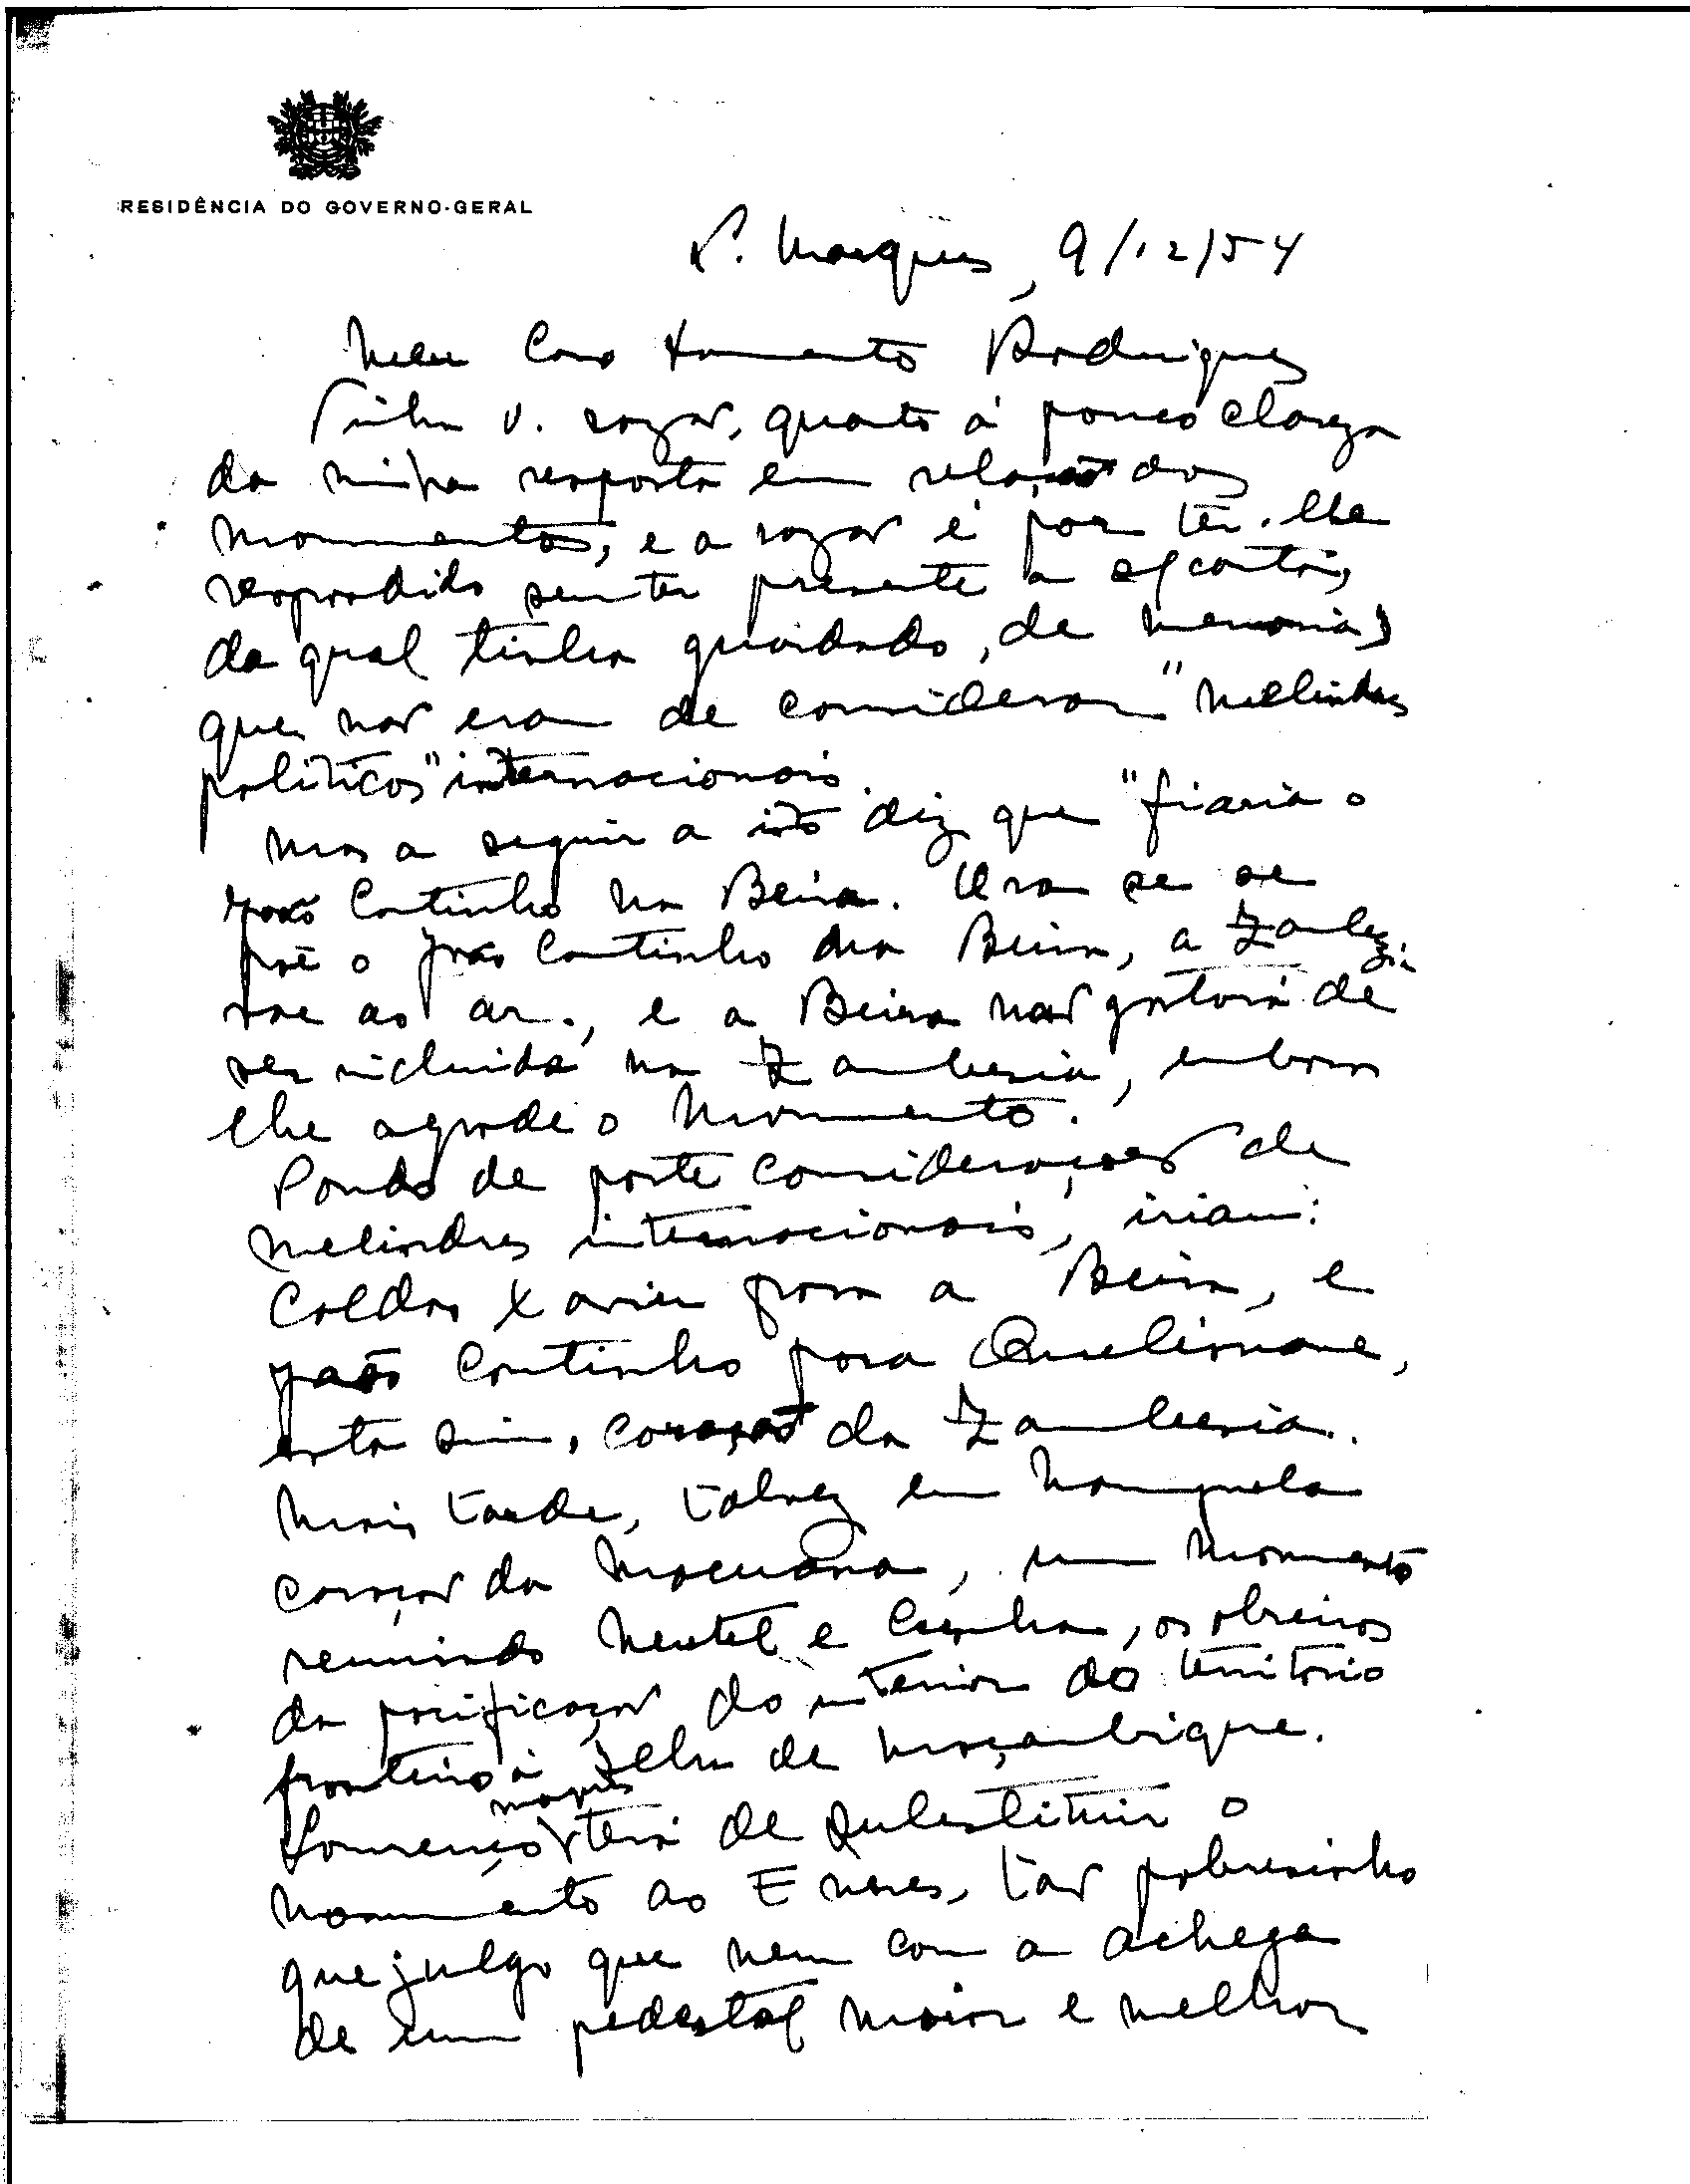 RESIDÊNCIA DO GOVERNO-GERAL
L. Marques, 9/12/54
Meu Caro Sarmento Rodrigues
Tinha V. razão, quanto à pouca clareza
da minha resposta em relação aos
monumentos, e a razão é por ter-lhe
respondido sem ter presente a s/ carta,
da qual tinha guardado, de memoria,
que não eram de considerar "melindres
politicos" internacionais.
Mas a seguir a isto diz que "ficaria o
João Coutinho na Beira. Ora se se
põe o João Coutinho na Beira, a Zambezia
vae ao ar., e a Beira não gostará de
ser incluida na Zambesia, embora
lhe agrade o monumento.
Pondo de parte considerações de
melindres internacionais, iriam:
Caldas Xavier para a Beira, e
João Coutinho para Quelimane,
esta sim, coração da Zambesia.
Mais tarde, talvez em Nampula
coração da Macuana, um monumento
reunindo Neutel e Cunha, os obreiros
da pacificação do interior do territorio
fronteiro à Ilha de Moçambique.
Lourenço Marques terá de substituir o
monumento ao Enes, tão pobresinho
que julgo que nem com a achega
de um pedestal maior e melhor